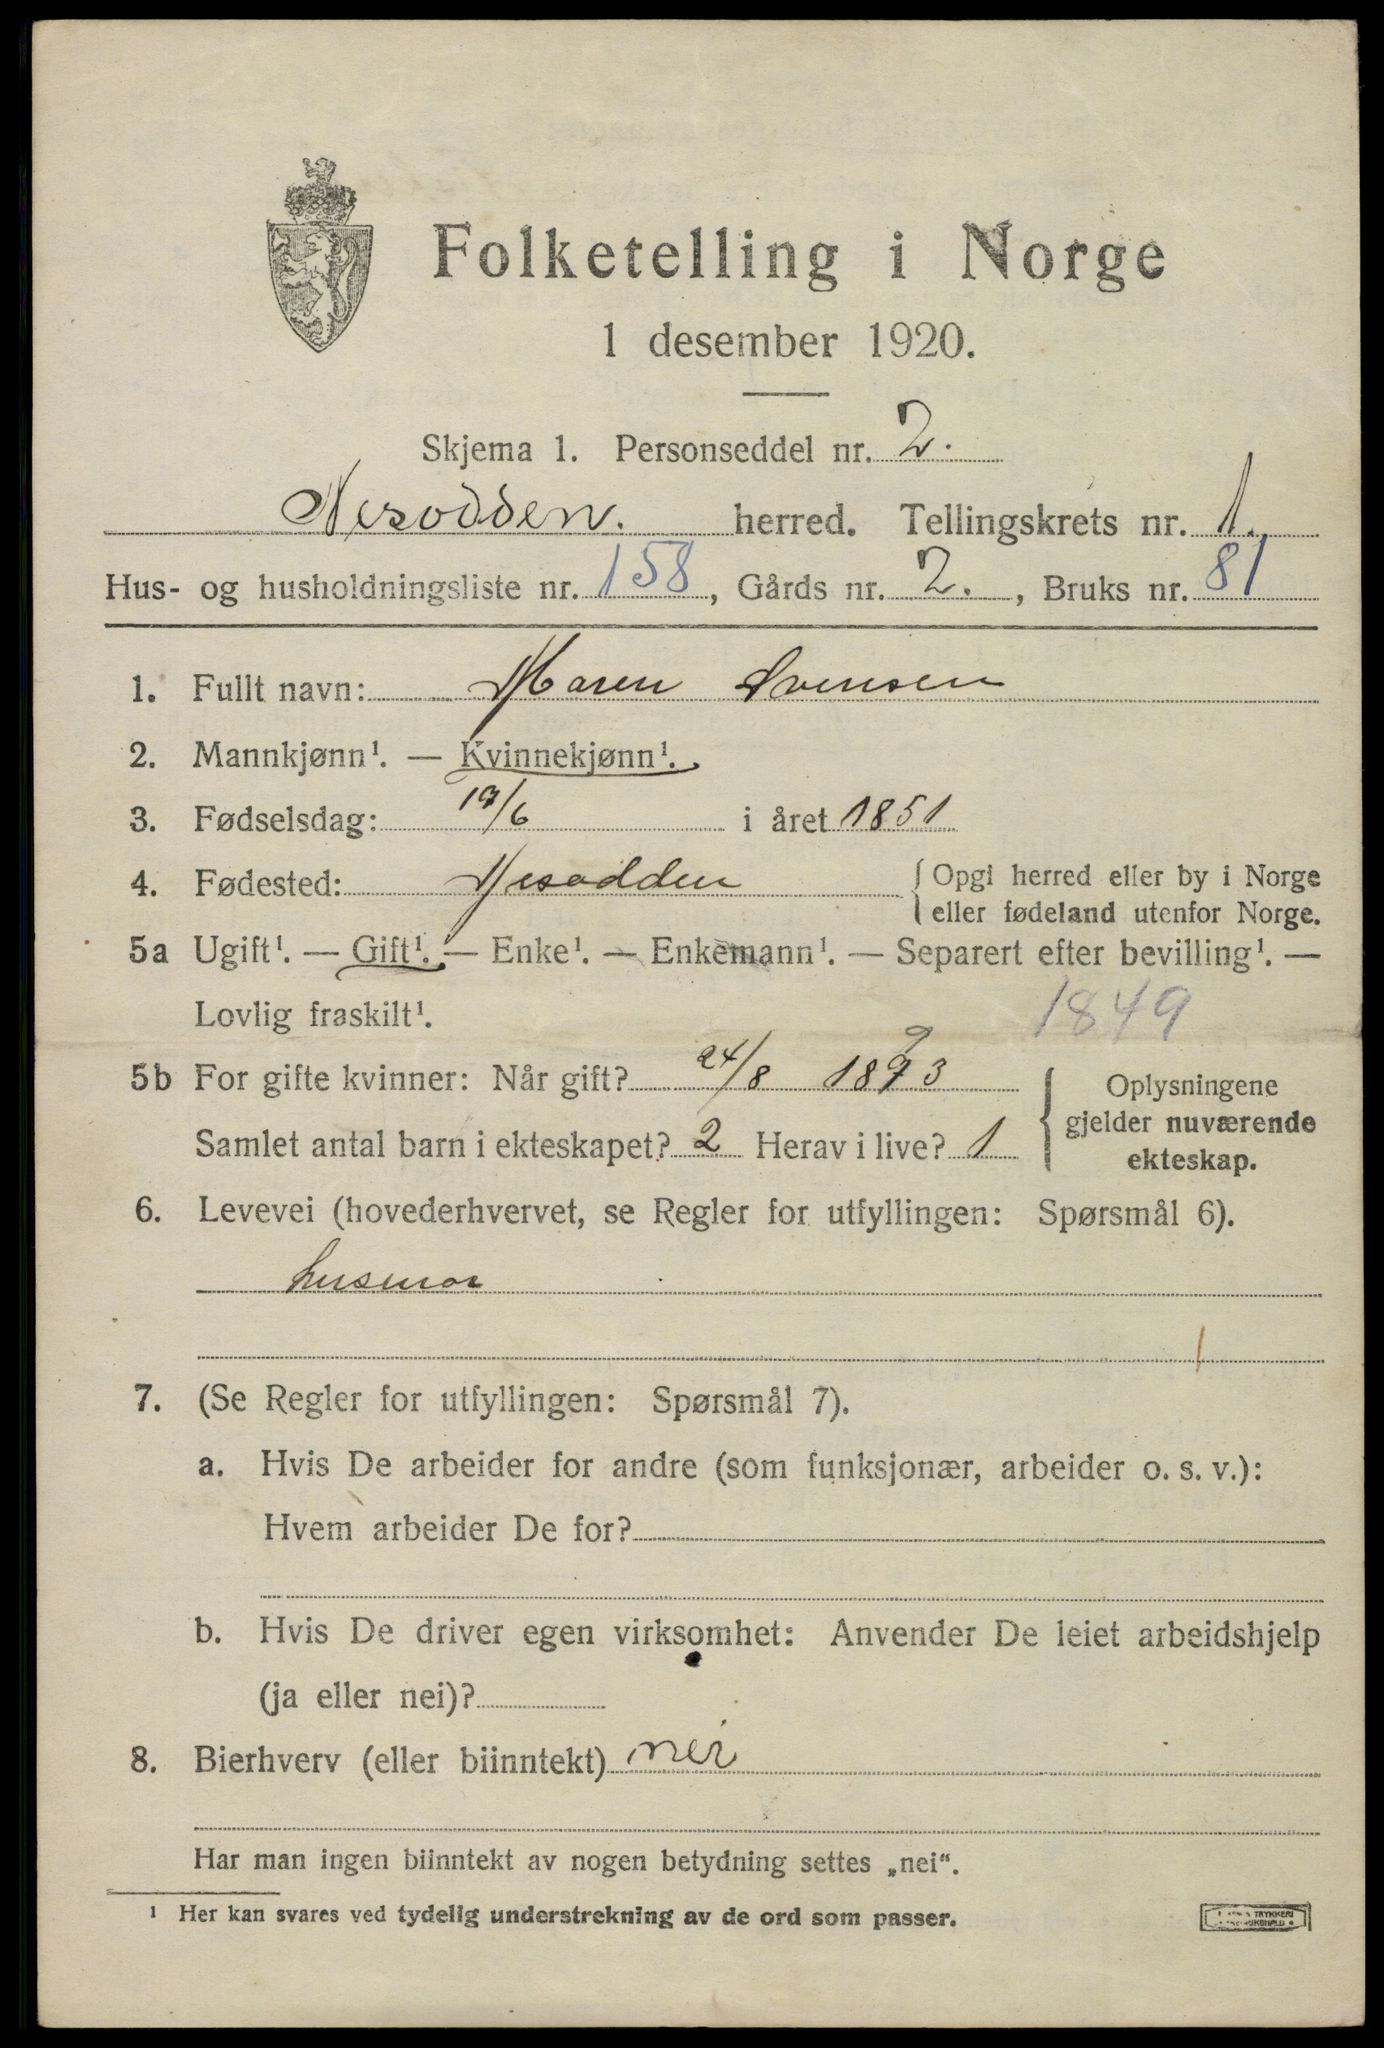 Folketelling i Norge
1 desember 1920.
Skjema 1. Personseddel nr. 2.
Nesodden. herred. Tellingskrets nr. 1.
Hus- og husholdningsliste nr. 158, Gårds nr. 2., Bruks nr. 81
1. Fullt navn: Maren Svensen
2. Mannkjønn¹. — Kvinnekjønn¹.
3. Fødselsdag: 19/6 i året 1851
4. Fødested: Nesodden { Opgi herred eller by i Norge
eller fødeland utenfor Norge.
5a Ugift¹. — Gift¹. — Enke¹. — Enkemann¹. — Separert efter bevilling¹. —
Lovlig fraskilt¹. 1849
5b For gifte kvinner: Når gift? 24/8 1893
Samlet antal barn i ekteskapet? 2 Herav i live? 1
Oplysningene
gjelder nuværende
ekteskap.
6. Levevei (hovederhvervet, se Regler for utfyllingen: Spørsmål 6).
husmor
1
7. (Se Regler for utfyllingen: Spørsmål 7).
a. Hvis De arbeider for andre (som funksjonær, arbeider o. s. v.):
Hvem arbeider De for?
b. Hvis De driver egen virksomhet: Anvender De leiet arbeidshjelp
(ja eller nei)?
8. Bierhverv (eller biinntekt) nei
Har man ingen biinntekt av nogen betydning settes „nei“.
¹ Her kan svares ved tydelig understrekning av de ord som passer.
TRYKKERI